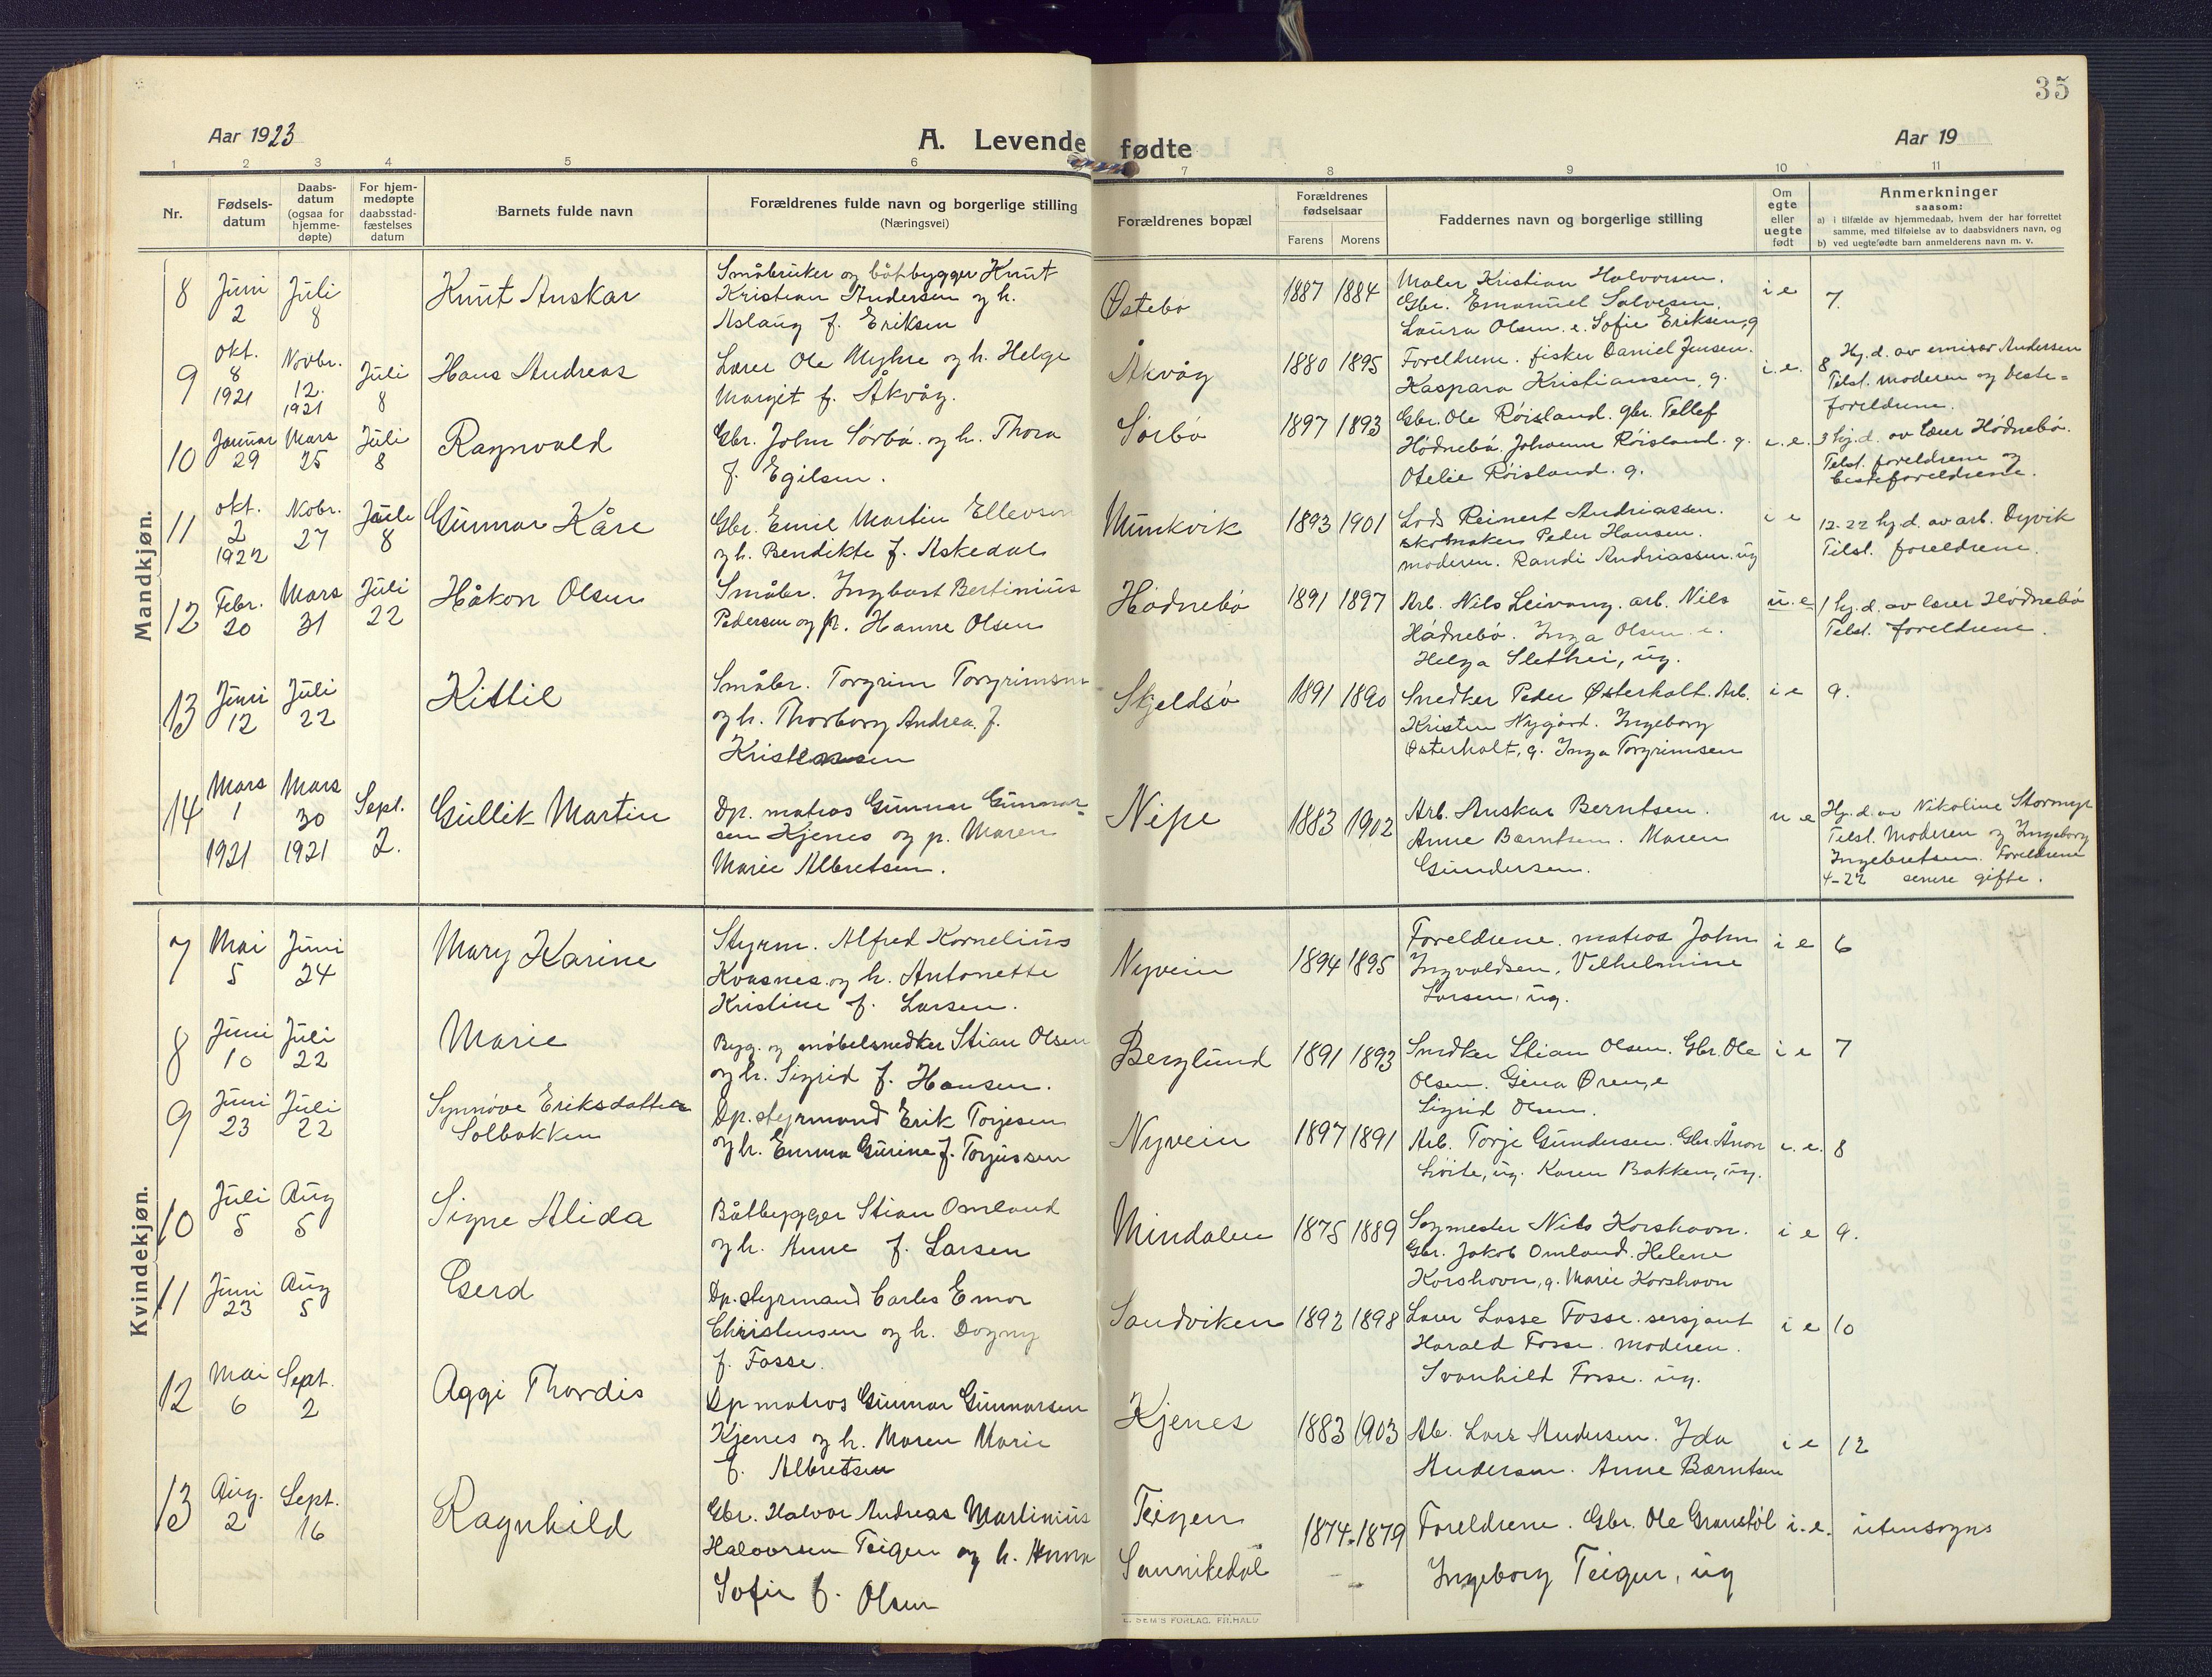 35
Aar 1923
A. Levende fødte
Aar 19
1 2 3 4 5 6 7 8 9 10 11
Nr.
Fødsels-
datum
Daabs-
datum
(ogsaa for
hjemme-
døpte)
For hjem-
medøpte
daabsstad-
fæstelses
datum
Barnets fulde navn
Forældrenes fulde navn og borgerlige stilling
(Næringsvei)
Forældrenes bopæl
Forældrenes
fødselsaar
Farens Morens
Faddernes navn og borgerlige stilling
Om
egte
eller
uegte
født
Anmerkninger
saasom:
a) i tilfælde av hjemmedaab, hvem der har forrettet
samme, med tilføielse av to daabsvidners navn, og
b) ved uegtefødte barn anmelderens navn m. v.
Mandkjøn.
8
Juni
2
Juli
8
Knut Anskar
Småbruker og båtbygger Knut
Kristian Andersen og h.
Aslaug f. Eriksen
Østebø
1887 1884
Maler Kristian Halvorsen.
Gbr. Emanuel Salvesen.
Laura Olsen. e. Sofie Eriksen, g
i e
7.
9
Okt.
8
1921
Novbr.
12.
1921
Juli
8
Hans Andreas
Lærer Ole Myhre og h. Helge
Margit f. Åkvåg.
Åkvåg
1880 1895
Foreldrene. fisker Daniel Jensen.
Kaspara Kristiansen, g.
i. e.
8 Hj. d. av emisær Andersen
Tilst. moderen og beste=
foreldrene.
10
Januar
29
Mars
25
Juli
8
Ragnvald
Gbr. John Sørbø. og h. Thora
f. Egilsen.
Sørbø
1897 1893
Gbr. Ole Røisland. gbr. Tellef
Hødnebø. Johanne Røisland. g.
Otelie Røisland. g.
i. e.
3 hj. d. av lærer Hødnebø.
Tilst. foreldrene og
besteforeldrene.
11
Okt.
2
1922
Nobr.
27
Juli
8
Gunnar Kåre
Gbr. Emil Martin Ellevsen
og h. Bendikte f. Askedal
Munkvik
1893 1901
Lods Reinert Andriassen.
skomaker Peder Hansen.
moderen. Randi Andriassen. ug
i e
12-22 hj. d. av arb. Dyvik
Tilst. foreldrene.
12
Febr.
20
Mars
31
Juli
22
Håkon Olsen
Småbr. Ingbart Bertinius
Pedersen og p. Hanne Olsen
Hødnebø
1891 1897
Arb. Nils Leivang. arb. Nils
Hødnebø. Inga Olsen e.
Helga Slethei, ug.
u. e
1 hj. d. av lærer Hødnebø
Tilst. foreldrene.
13
Juni
12
Juli
22
Kittil
Småbr. Torgrim Torgrimsen
og h. Thorborg Andrea f.
Kristensen
Skjeldsø
1891 1890
Snedker Peder Østerholt. Arb.
Kristen Nygård. Ingeborg
Østerholt, g. Inga Torgrimsen
i e
9.
14
Mars
1
1921
Mars
30
1921
Sept.
2.
Gullik Martin
Dp. matros Gunnar Gunnar-
sen Kjenes og p. Maren
Marie Albretsen.
Nipe
1883 1902
Arb. Anskar Berntsen.
Anne Bærntsen. Maren
Gundersen.
u e
Hj. d. av Nikoline Stormyr
Tilst. Moderen og Ingeborg
Ingebretsen. Foreldrene
4-22 senere gifte.
Kvindekjøn.
7
Mai
5
Juni
24
Mary Karine
Styrm. Alfred Kornelius
Kvasnes og h. Antonette
Kristine f. Larsen.
Nyvein
1894 1895
Foreldrene. matros John
Ingvaldsen, Vilhelmine
Larsen, ug.
i e
6
8
Juni
10
Juli
22
Marie
Byg. og møbelsnedker Stian Olsen
og h. Sigrid f. Hansen.
Berglund
1891 1893
Snedker Stian Olsen. Gbr. Ole
Olsen. Gina Ørenge
Sigrid Olsen.
i e
7
9
Juni
23
Juli
22
Synnøve Eriksdatter
Solbakken
Dp. styrmand Erik Torjesen
og h. Emma Gurine f. Torjussen
Nyvein
1897 1891
Arb. Torje Gundersen. Gbr. Ånon
Løite, ug. Karen Bakken, ug.
i. e.
8
10
Juli
5
Aug
5
Signe Alida
Båtbygger Stian Omland
og h. Anne f. Larsen
Mindalen
1875 1889
Sagmester Nils Korshavn.
Gbr. Jakob Omland. Helene
Korshavn, g. Marie Korshavn
i e
9.
11
Juni
23
Aug
5
Gerd
Dp. styrmand Carles Emor
Christensen og h. Dagny
f. Fosse.
Sandviken
1892 1898
Lærer Lasse Fosse. sersjant
Harald Fosse. Moderen.
Svanhild Fosse. ug.
i e
10
12
Mai
6
Sept.
2
Aggi Thordis
Dp matros Gunnar Gunnarsen
Kjenes og h. Maren Marie
f. Albretsen
Kjenes
1883 1903
Ab. Lars Andersen. Ida
Andersen. Anne Bærntsen
i e
12
13
Aug.
2
Sept.
16
Ragnhild
Gbr. Halvor Andreas Martinius
Halvorsen Teigen og h. Anna
Sofie f. Olsen
Teigen
Sannikedal
1874 1879
Foreldrene. Gbr. Ole Granstøl
Ingeborg Teigen, ug
i. e.
utensogns
E. SEM'S FORLAG. FR.HALD